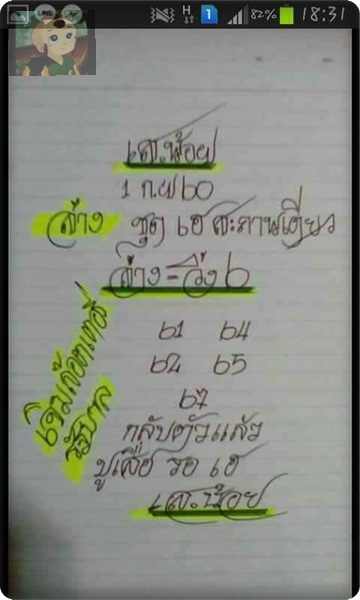 LINE H 1 82% 18:31
เส.น้อย
1 กย ๖๐
ล่าง ชุด เฮ สะดานเดียว
ล่าง = วิ่ง ๖
๖1 ๖4
๖2 ๖5
๖7
กลับตัวแล้ว
ปูเสื่อ รอ เฮ
เส.น้อย
รัฐบาล